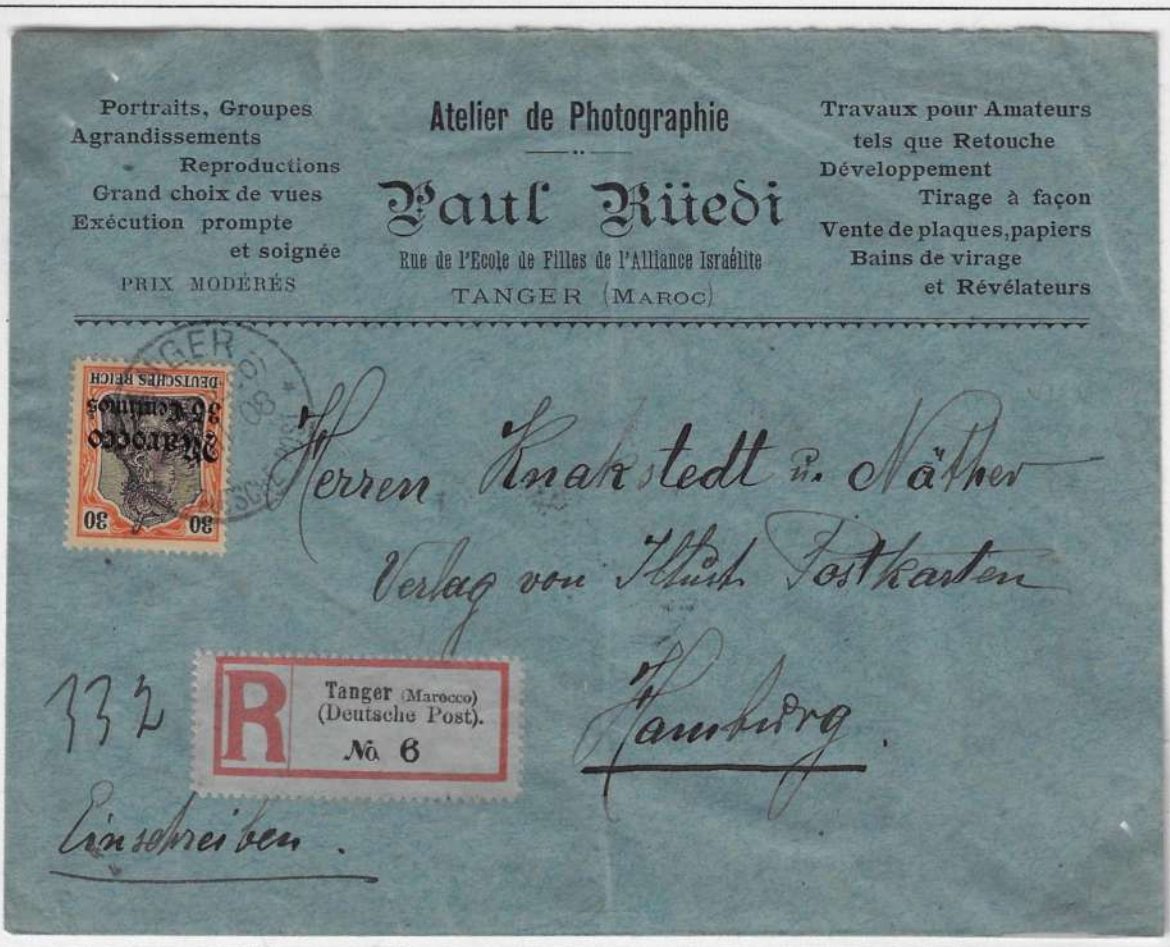 Portraits, Groupes
Agrandissements
Reproductions
Grand choix de vues
Exécution prompte
et soignée
PRIX MODÉRÉS
Atelier de Photographie
Paul Rüedi
Rue de l'Ecole de Filles de l'Alliance Israélite
TANGER (MAROC)
Travaux pour Amateurs
tels que Retouche
Développement
Tirage à façon
Vente de plaques, papiers
Bains de virage
et Révélateurs
TANGER
08
DEUTSCHES REICH
35 Centimos
Marocco
30 30
Herren Knakstedt u. Näther
Verlag von Illust. Postkarten
Hamburg.
332
R
Tanger (Marocco)
(Deutsche Post).
No. 6
Einschreiben.